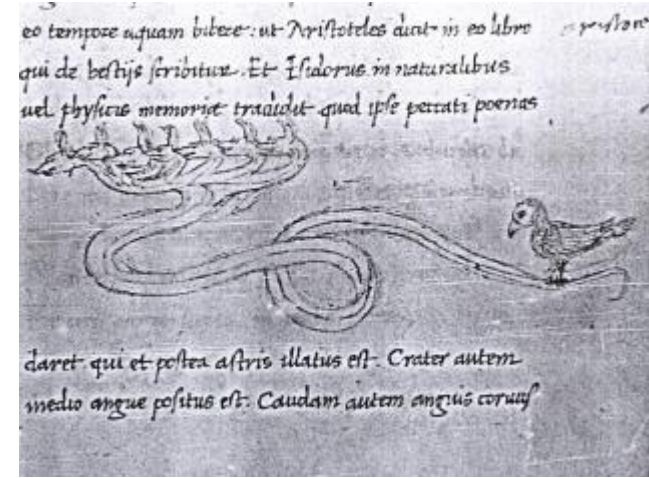 eo tempore aquam bibere: ut Aristoteles dicit in eo libro
qui de bestijs scribitur. Et Isidorus in naturalibus
uel physicis memoriæ tradidit quod ipse peccati poenas
daret qui et postea astris illatus est. Crater autem
medio angue positus est. Caudam autem anguis coruus